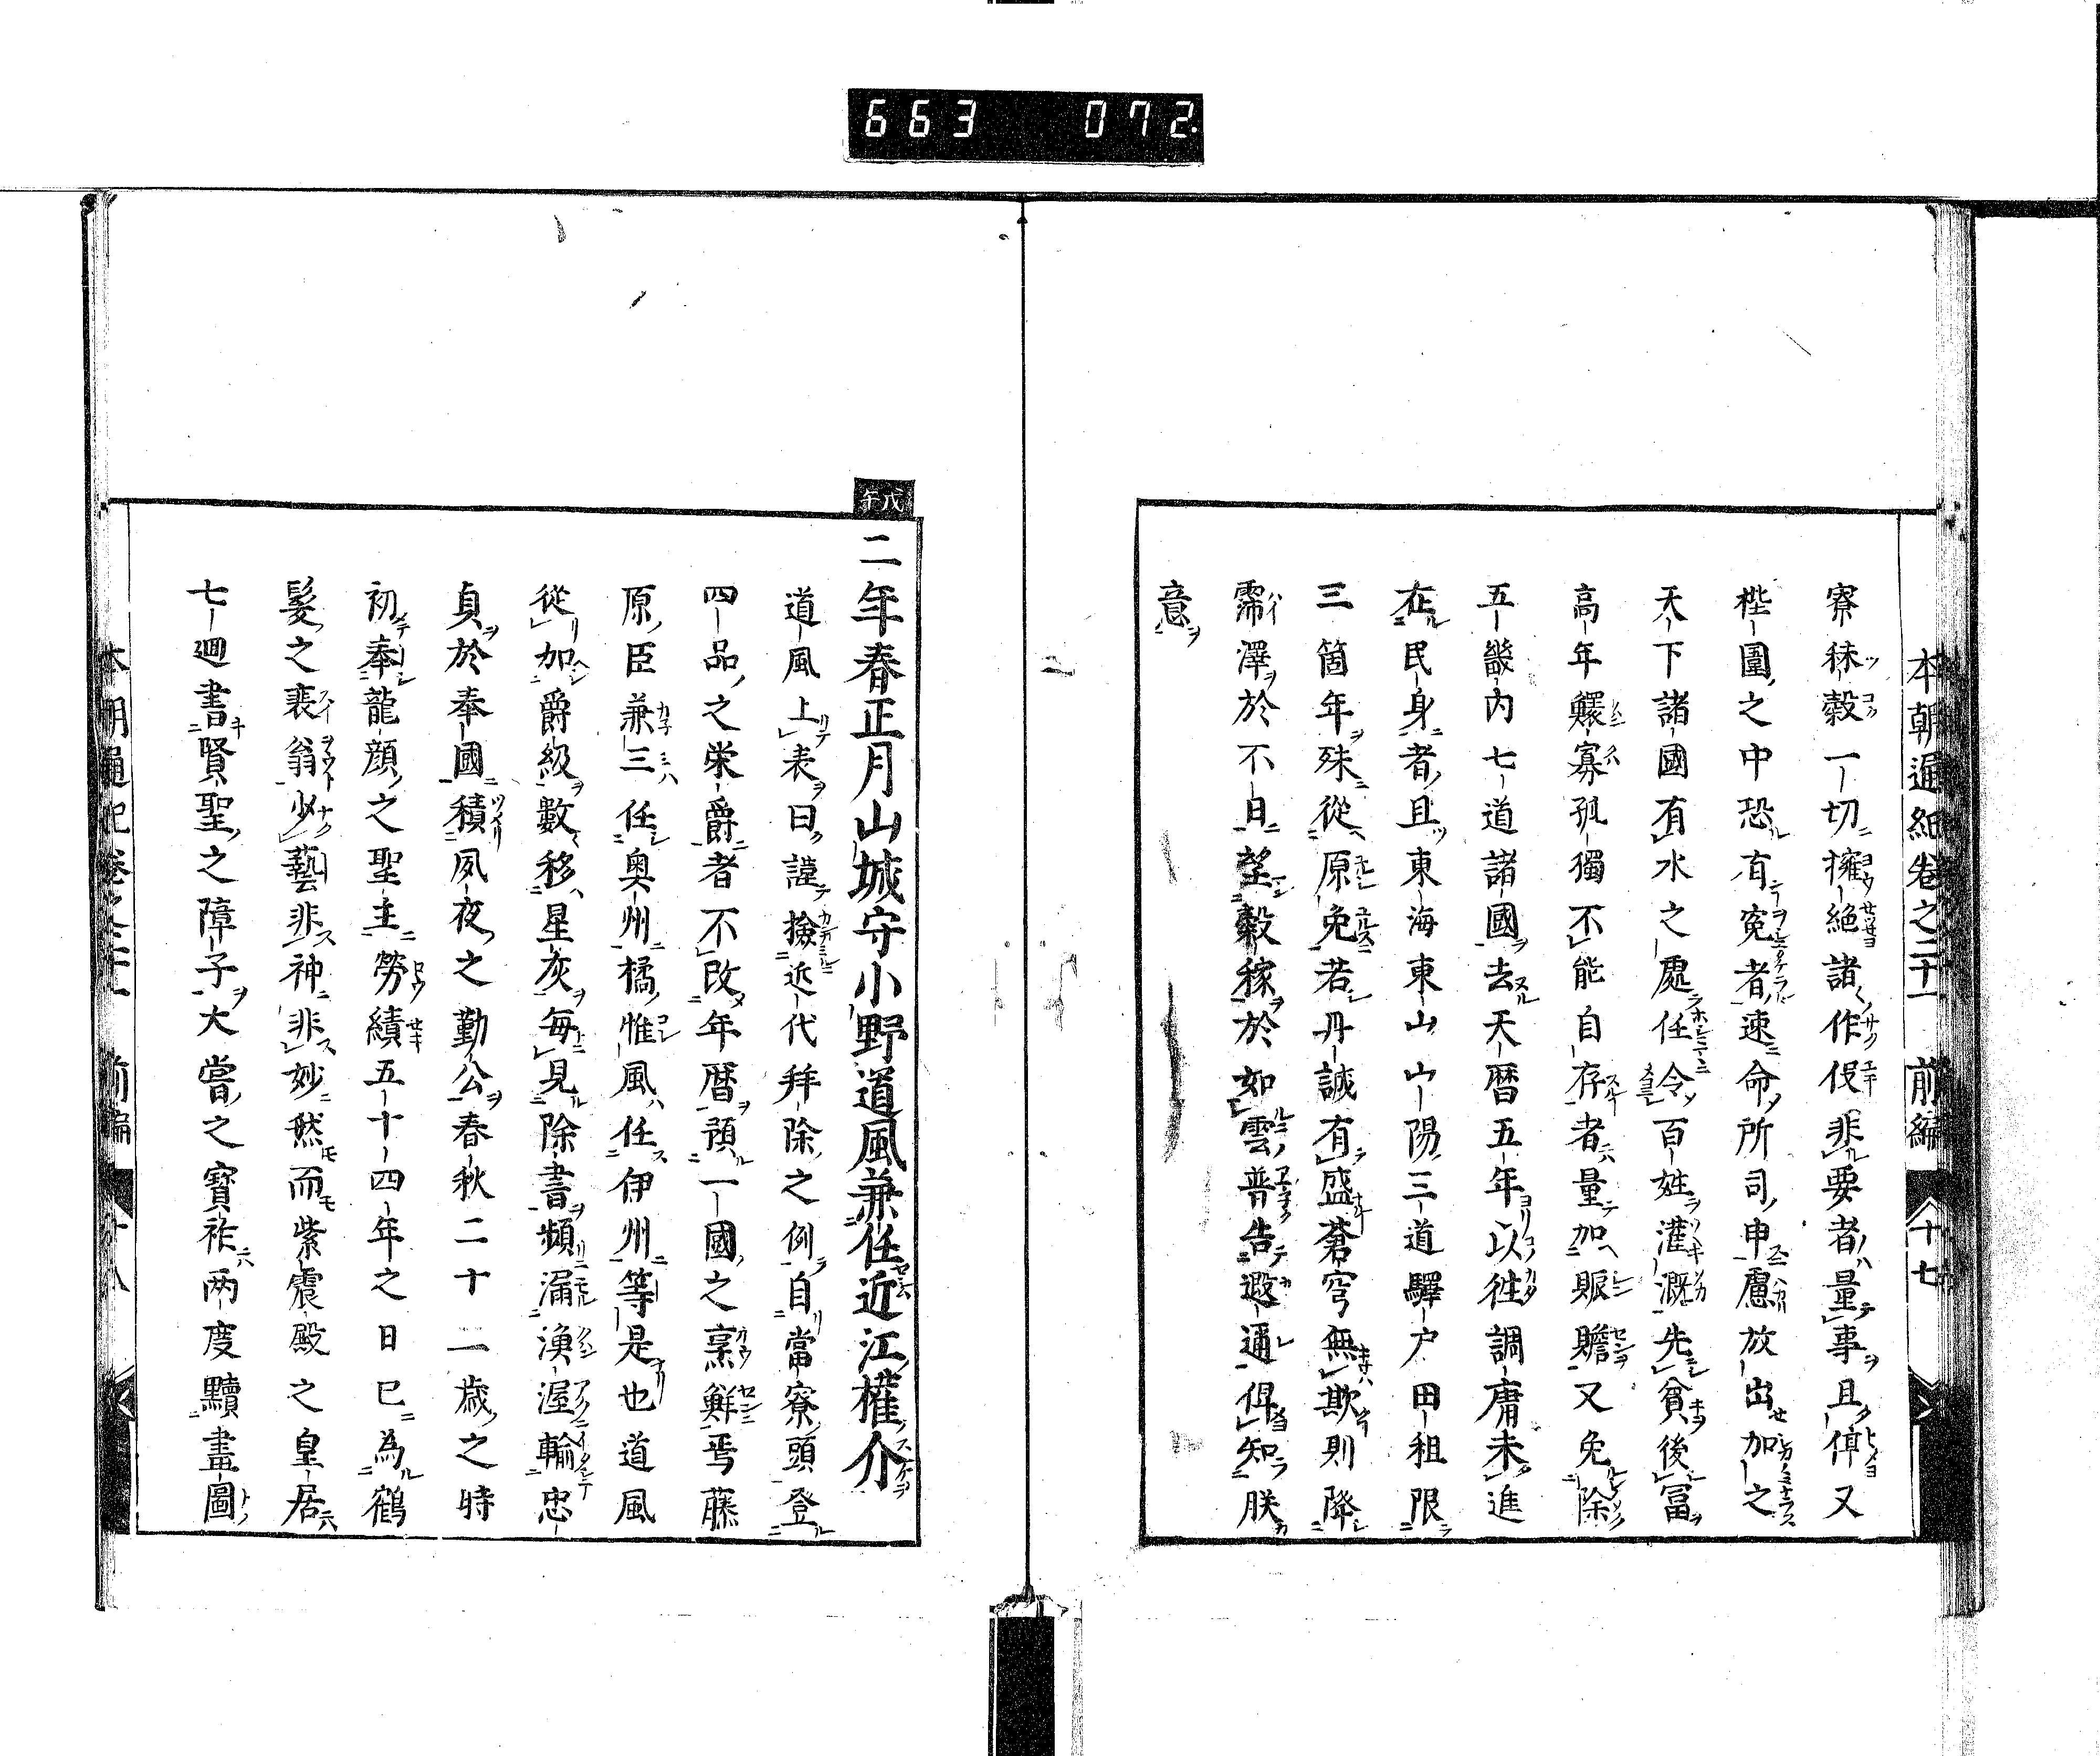 663 072
本朝通紀卷之二十一 前編 十七
寮秣穀一切擁絶諸作役非要者量事且停又
梐圄之中恐有寃者速命所司申慮放出加之
天下諸國有水之處任令百姓灌漑先貧後冨
高年鰥寡孤獨不能自存者量加賑贍又免除
五畿内七道諸國去天暦五年以徃調庸未進
在民身者且東海東山山陽三道驛户田租限
三箇年殊從原免若丹誠有盛蒼穹無欺則降
霈澤於不日望穀稼於如雲普告遐通俾知朕
意
戊午
二年春正月山城守小野道風兼任近江權介
道風上表曰謹撿近代拜除之例自當寮頭登
四品之栄爵者不改年暦預一國之烹鮮焉藤
原臣兼三任奥州橘惟風任伊州等是也道風
從加爵級數移星灰毎見除書頻漏渙渥輸忠
貞於奉國積夙夜之勤公春秋二十二歳之時
初奉龍顔之聖主勞績五十四年之日已為鶴
髮之裴翁少藝非神非妙然而紫震殿之皇居
七廻書賢聖之障子大嘗之寳祚两度黷畫圖
本朝通紀卷之二十一 前編 十八